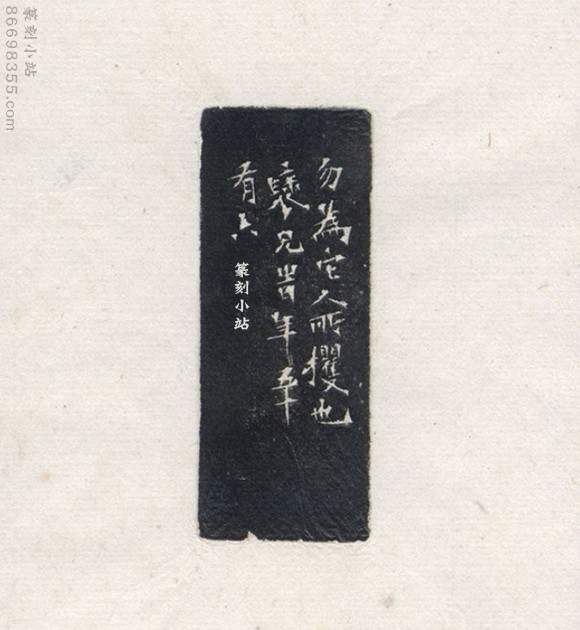 勿為它人所攫也
兄旹年五十
有六
篆刻小站
篆刻小站
86698355.com